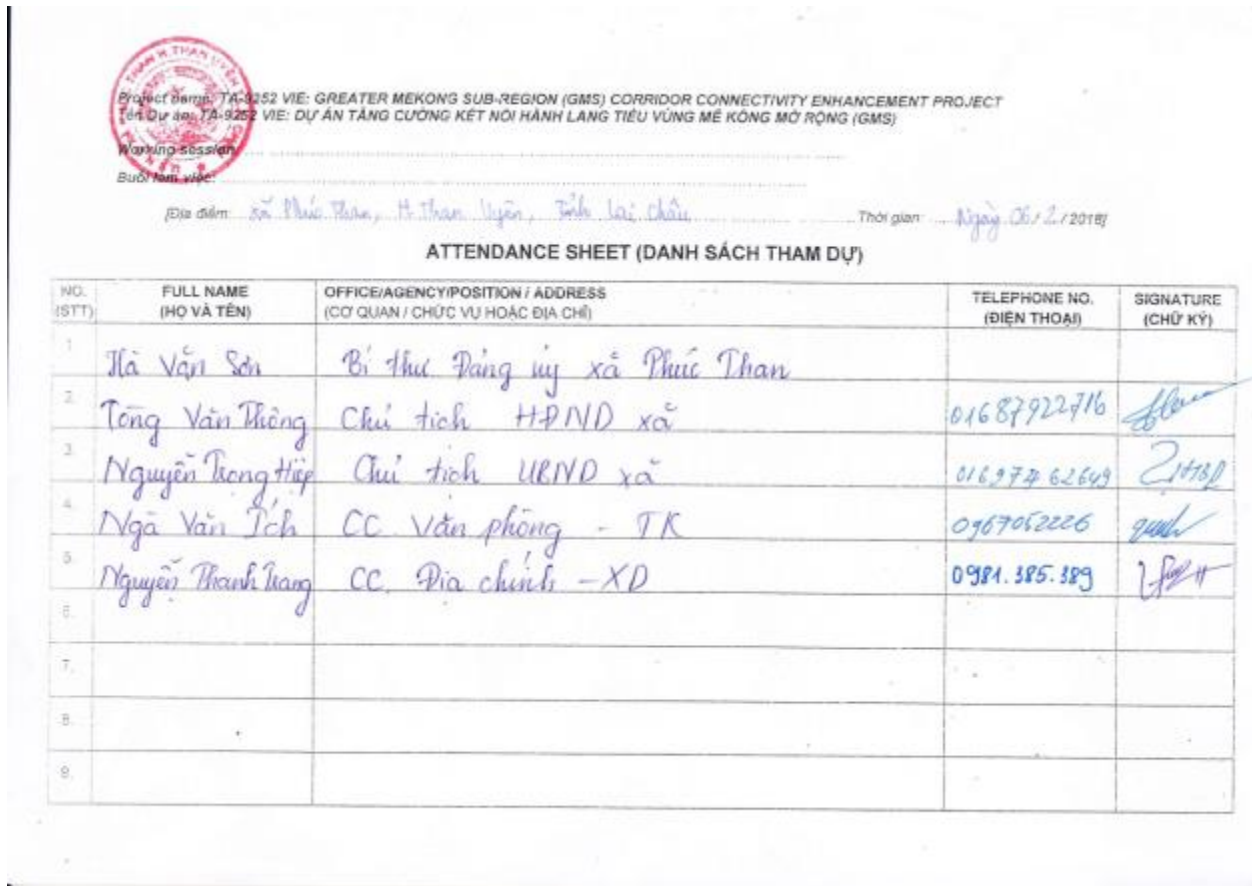 H. THAN UYÊN
Project name: TA-9252 VIE: GREATER MEKONG SUB-REGION (GMS) CORRIDOR CONNECTIVITY ENHANCEMENT PROJECT
Tên Dự án: TA-9252 VIE: DỰ ÁN TĂNG CƯỜNG KẾT NỐI HÀNH LANG TIỂU VÙNG MÊ KÔNG MỞ RỘNG (GMS)
Working session:
Buổi làm việc:
[Địa điểm: xã Phúc Than, H Than Uyên, Tỉnh Lai Châu Thời gian: Ngày 06/2/2018]
ATTENDANCE SHEET (DANH SÁCH THAM DỰ)
NO. (STT) FULL NAME (HỌ VÀ TÊN) OFFICE/AGENCY/POSITION / ADDRESS (CƠ QUAN / CHỨC VỤ HOẶC ĐỊA CHỈ) TELEPHONE NO. (ĐIỆN THOẠI) SIGNATURE (CHỮ KÝ)
1 Hà Văn Sơn Bí thư Đảng ủy xã Phúc Than
2. Tòng Văn Thông Chủ tịch HĐND xã 01687922716
3 Nguyễn Trọng Hiệp Chủ tịch UBND xã 01697462649
4. Ngà Văn Ích CC Văn phòng - TK 0967052226
5. Nguyễn Thanh Trang CC. Địa chính - XD 0981.385.389
6.
7.
8.
9.